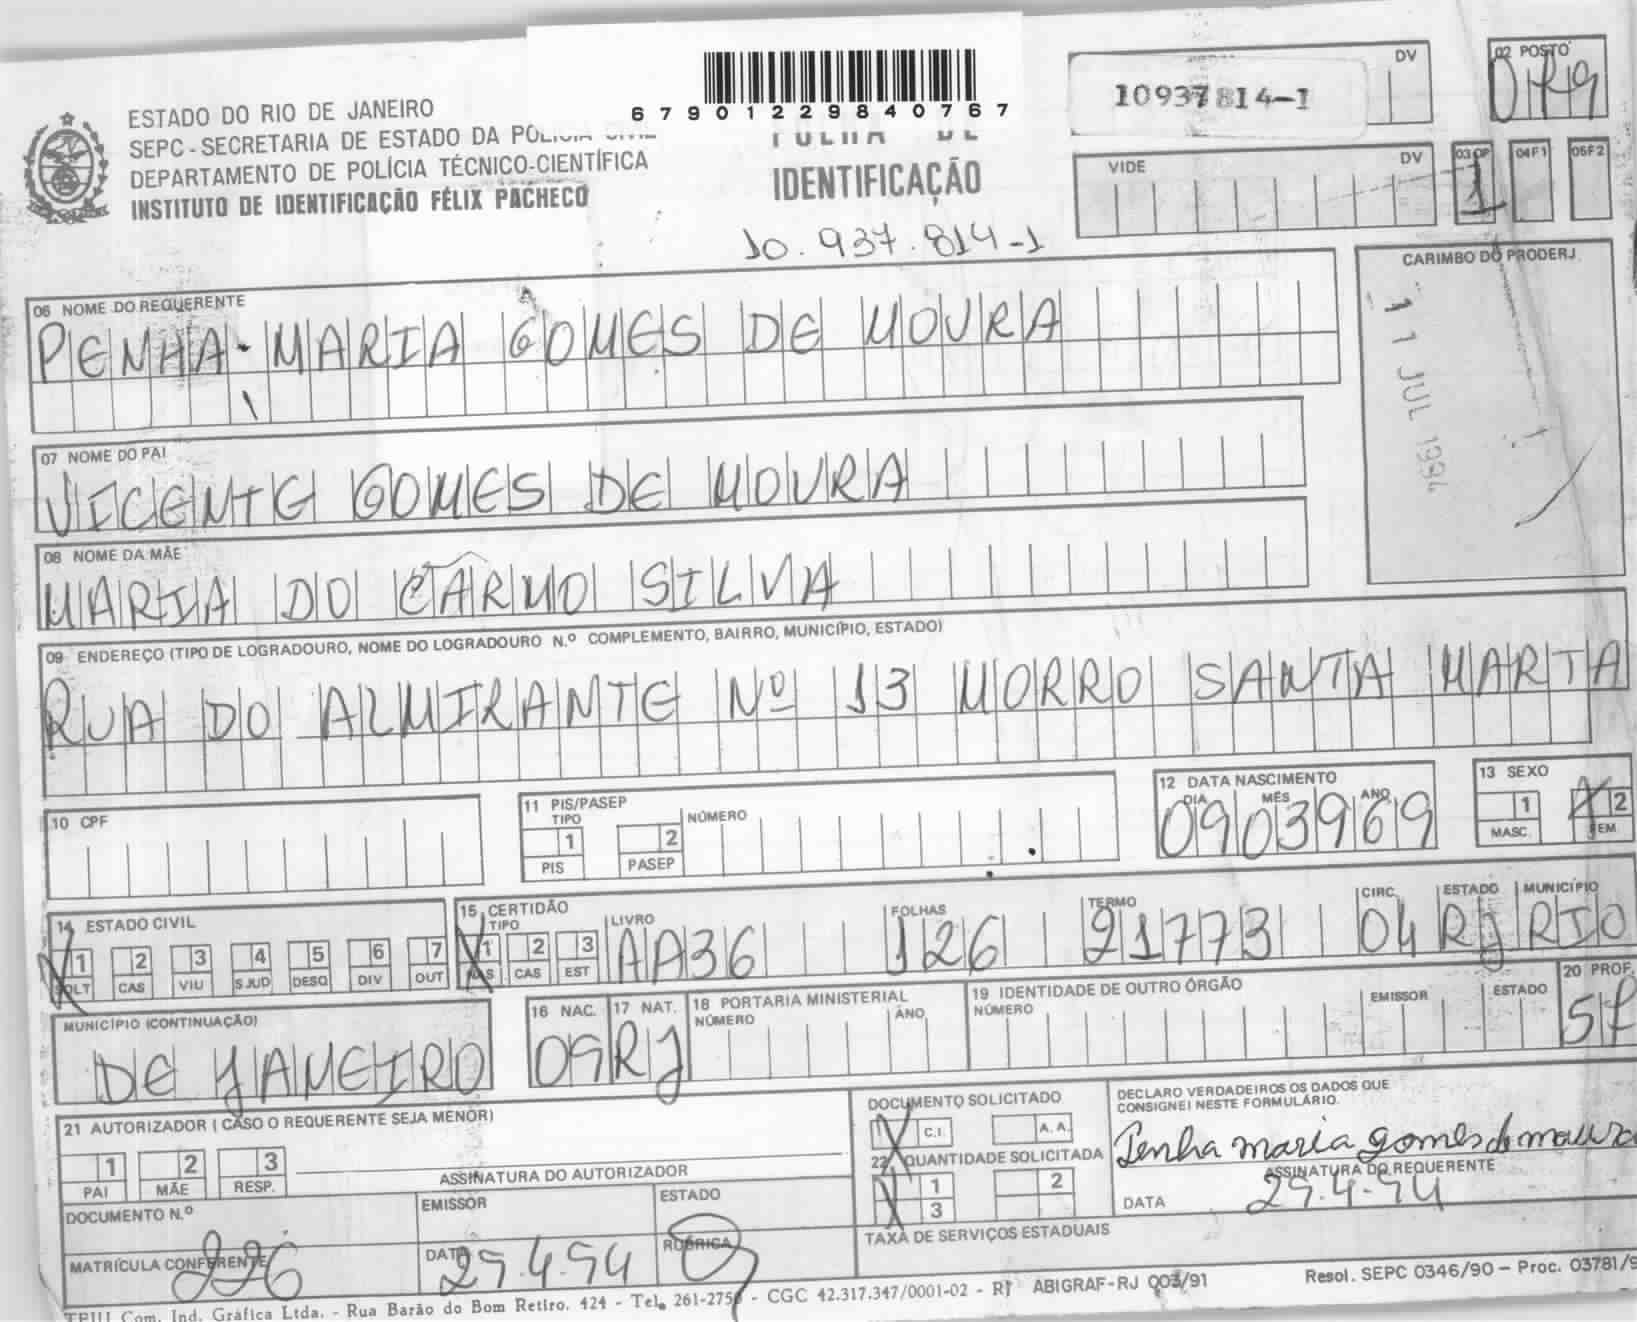 ESTADO DO RIO DE JANEIRO
SEPC - SECRETARIA DE ESTADO DA POLÍCIA CIVIL
DEPARTAMENTO DE POLÍCIA TÉCNICO-CIENTÍFICA
INSTITUTO DE IDENTIFICAÇÃO FÉLIX PACHECO
6790122984076 7
FOLHA DE
IDENTIFICAÇÃO
10.937.814-1
DV
10937814-1
02 POSTO
079
VIDE DV
03 OP 04 F1 05 F2
1
CARIMBO DO PRODERJ
11 JUL 1994
06 NOME DO REQUERENTE
PENHA MARIA GOMES DE MOURA
07 NOME DO PAI
VICENTE GOMES DE MOURA
08 NOME DA MÃE
MARIA DO CARMO SILVA
09 ENDEREÇO (TIPO DE LOGRADOURO, NOME DO LOGRADOURO N.º COMPLEMENTO, BAIRRO, MUNICÍPIO, ESTADO)
RUA DO ALMIRANTE Nº 13 MORRO SANTA MARTA
10 CPF
11 PIS/PASEP
TIPO NÚMERO
1 2
PIS PASEP
12 DATA NASCIMENTO
DIA MÊS ANO
0903969
13 SEXO
1 X 2
MASC. FEM.
14 ESTADO CIVIL
X 1 2 3 4 5 6 7
SOLT CAS VIU SJUD DESQ DIV OUT
15 CERTIDÃO
TIPO LIVRO FOLHAS TERMO CIRC. ESTADO MUNICÍPIO
X 1 2 3 AA36 126 21773 04 RJ RIO
NAS CAS EST
MUNICÍPIO (CONTINUAÇÃO)
DE JANEIRO
16 NAC. 17 NAT.
09 RJ
18 PORTARIA MINISTERIAL
NÚMERO ANO
19 IDENTIDADE DE OUTRO ÓRGÃO
NÚMERO EMISSOR ESTADO
20 PROF.
21 AUTORIZADOR (CASO O REQUERENTE SEJA MENOR)
1 2 3
PAI MÃE RESP.
ASSINATURA DO AUTORIZADOR
DOCUMENTO N.º EMISSOR ESTADO
MATRÍCULA CONFERENTE DATA RUBRICA
226 29.4.94
DOCUMENTO SOLICITADO
X C.I. A.A.
22 QUANTIDADE SOLICITADA
X 1 2
3
DECLARO VERDADEIROS OS DADOS QUE
CONSIGNEI NESTE FORMULÁRIO.
Penha maria gomes de moura
ASSINATURA DO REQUERENTE
DATA 29.4.94
TAXA DE SERVIÇOS ESTADUAIS
Com. Ind. Gráfica Ltda. - Rua Barão do Bom Retiro, 424 - Tel. 261-275 - CGC 42.317.347/0001-02 - RJ ABIGRAF-RJ 003/91
Resol. SEPC 0346/90 - Proc. 03781/9